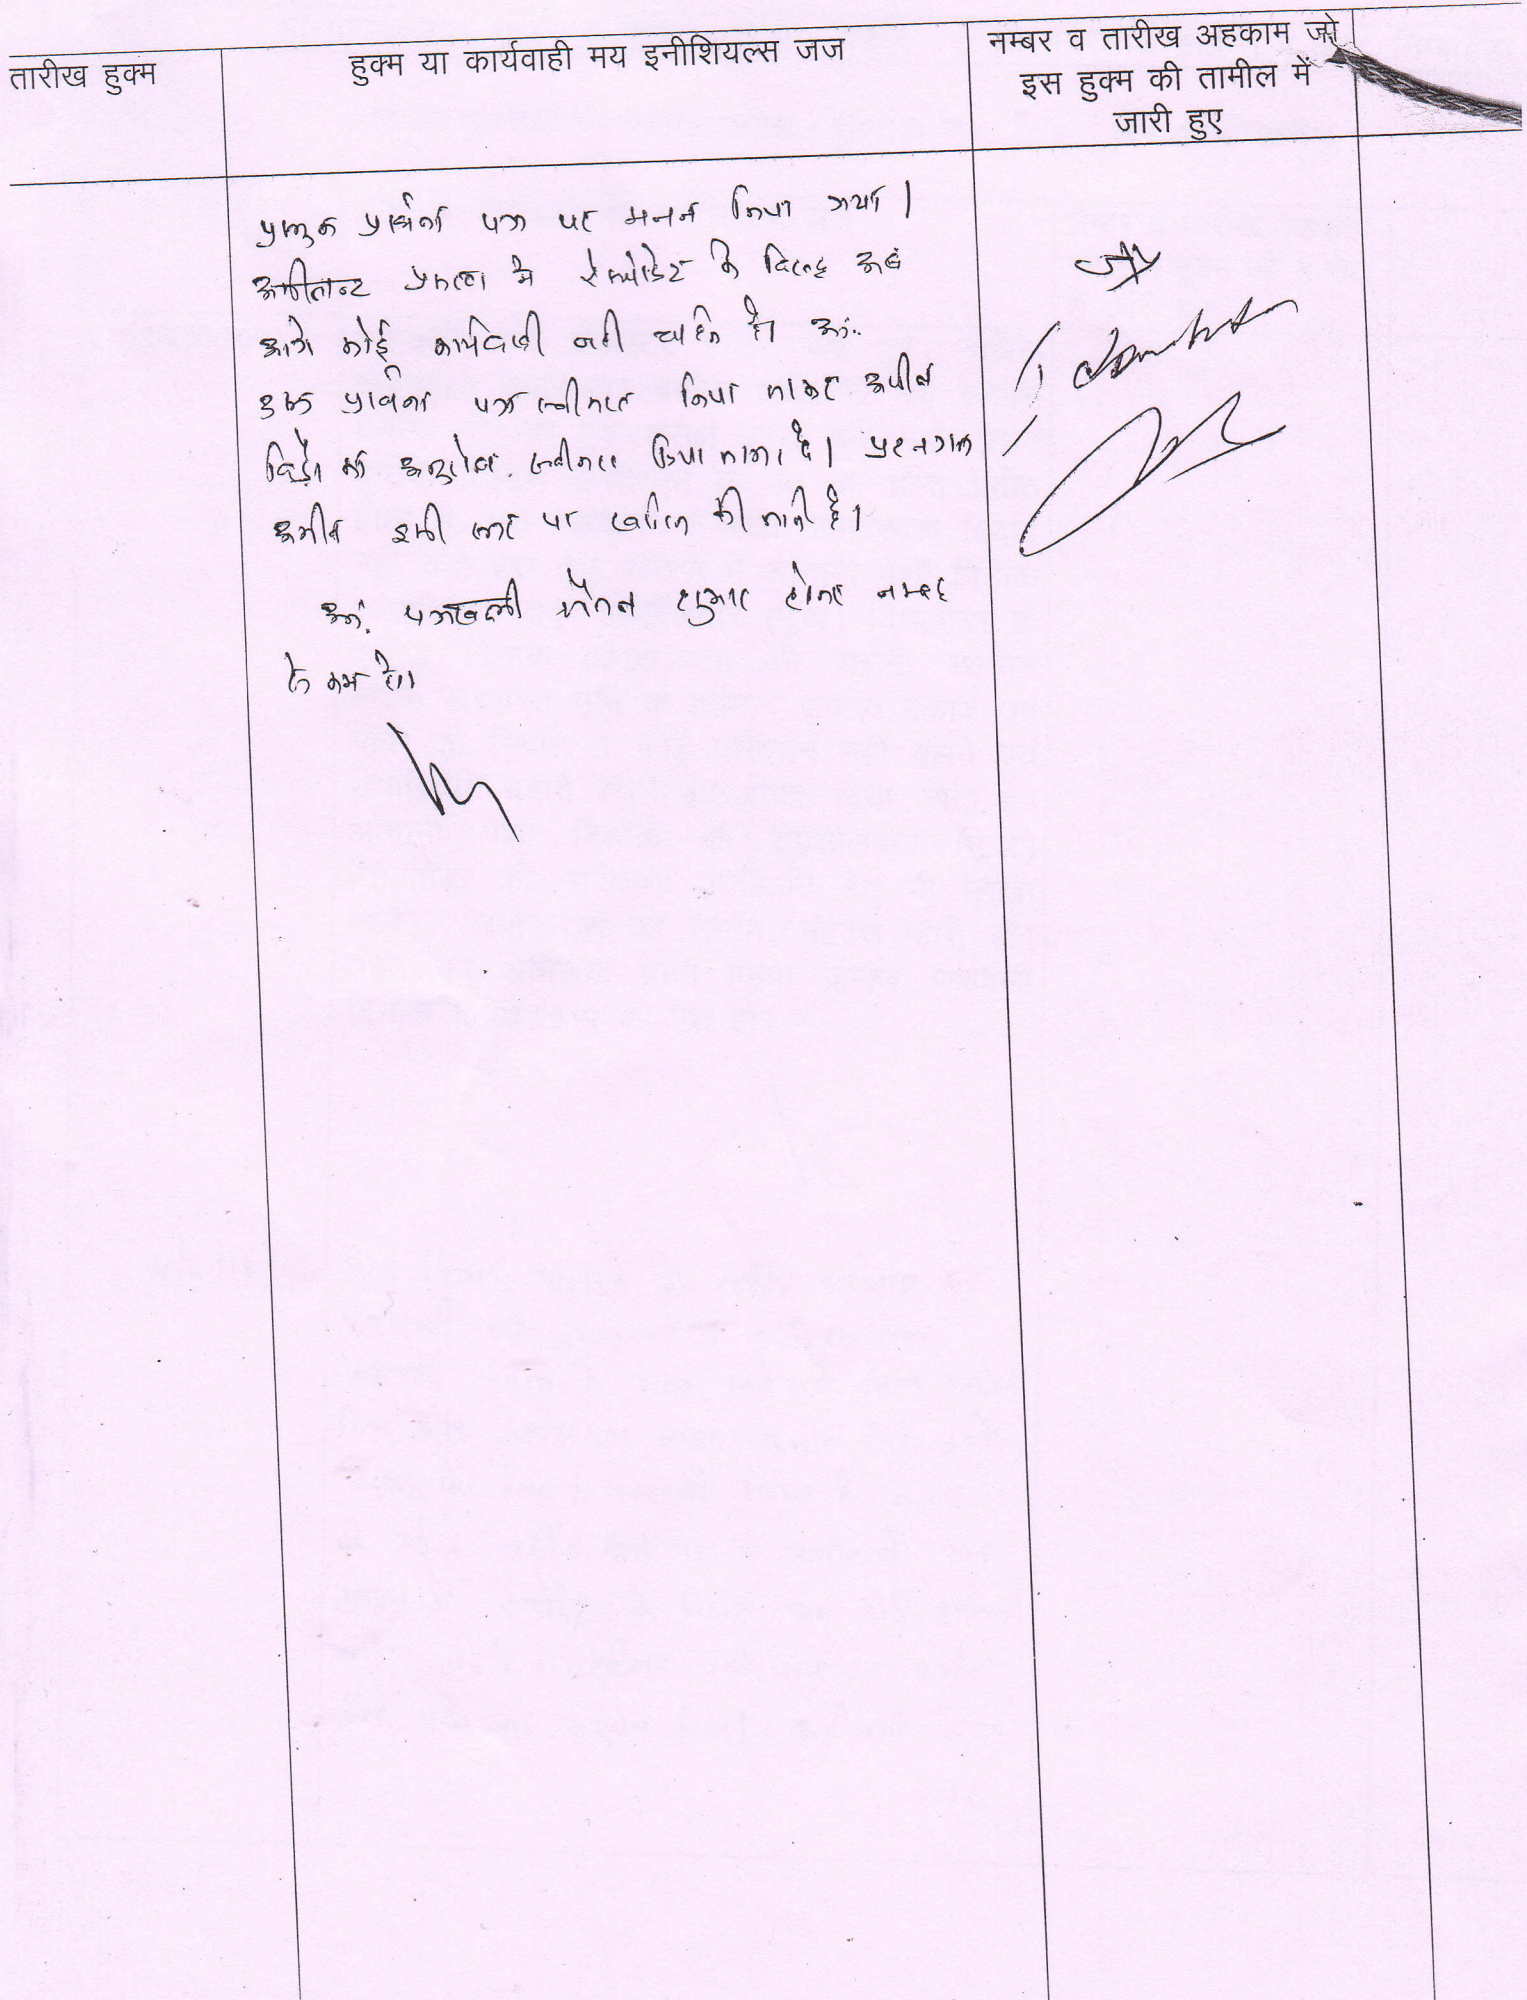 तारीख हुक्म
हुक्म या कार्यवाही मय इनीशियल्स जज
नम्बर व तारीख अहकाम जो
इस हुक्म की तामील में
जारी हुए
प्रार्थना पत्र पर मनन किया गया।
अपीलान्ट प्रकरण में रेस्पोंडेंट के विरुद्ध अब
आगे कोई कार्यवाही नहीं चाहते है। अतः
उक्त प्रार्थना पत्र स्वीकार किया जाकर अपील
विड्रो का अनुतोष स्वीकार किया जाता है। प्रश्नगत
अपील इसी स्तर पर खारिज की जाती है।
अतः पत्रावली फैसल शुमार होकर नम्बर
से कम हो।